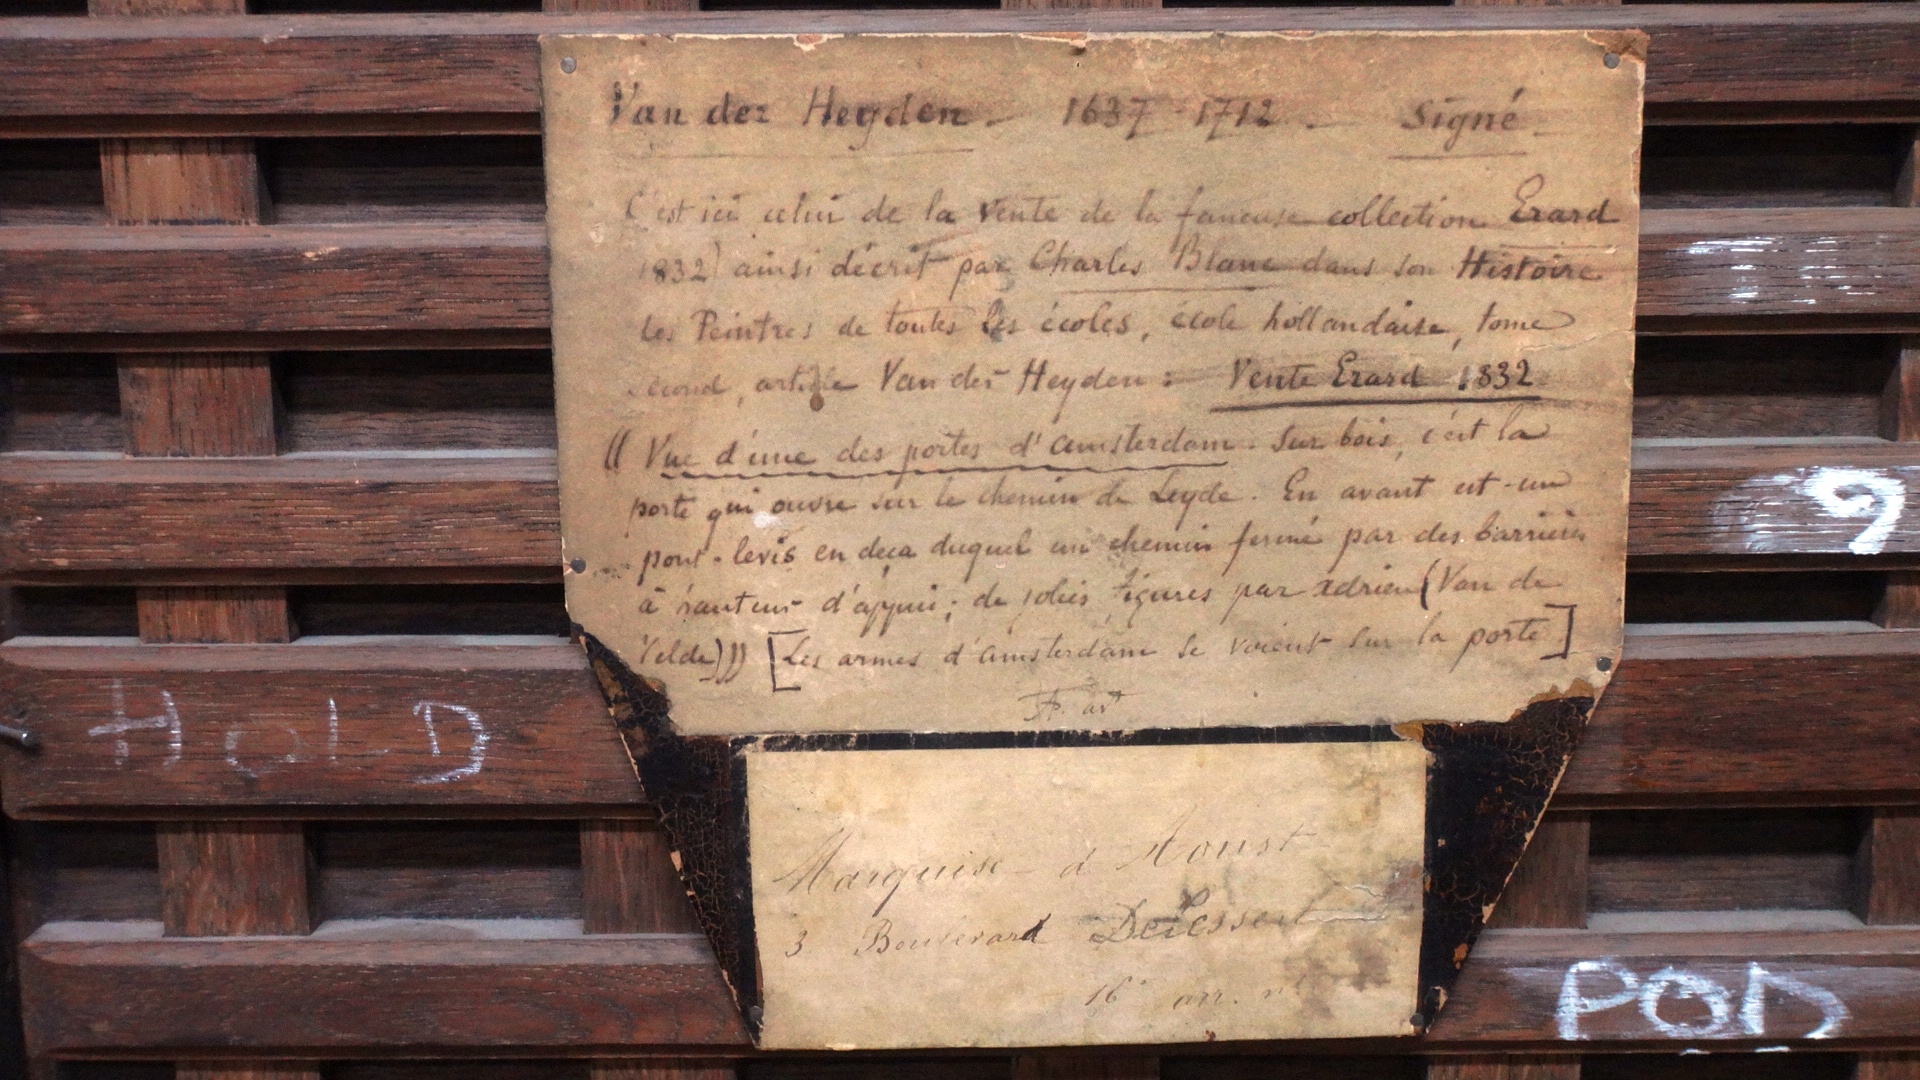 Van der Heyden - 1637 - 1712 - Signé -
C'est ici celui de la vente de la fameuse collection Erard
1832) ainsi décrit par Charles Blanc dans son Histoire
des Peintres de toutes les écoles, école hollandaise, tome
second, article Van der Heyden : Vente Erard 1832
(( Vue d'une des portes d'Amsterdam. Sur bois, c'est la
porte qui ouvre sur le chemin de Leyde. En avant est un
pont-levis en deça duquel un chemin fermé par des barrières
à hauteur d'appui; de jolies figures par Adrien (Van de
Velde))) [Les armes d'Amsterdam se voient sur la porte]
9
HOLD
Marquise d'Aoust
3 Boulevard Delessert
16e arr.
POD